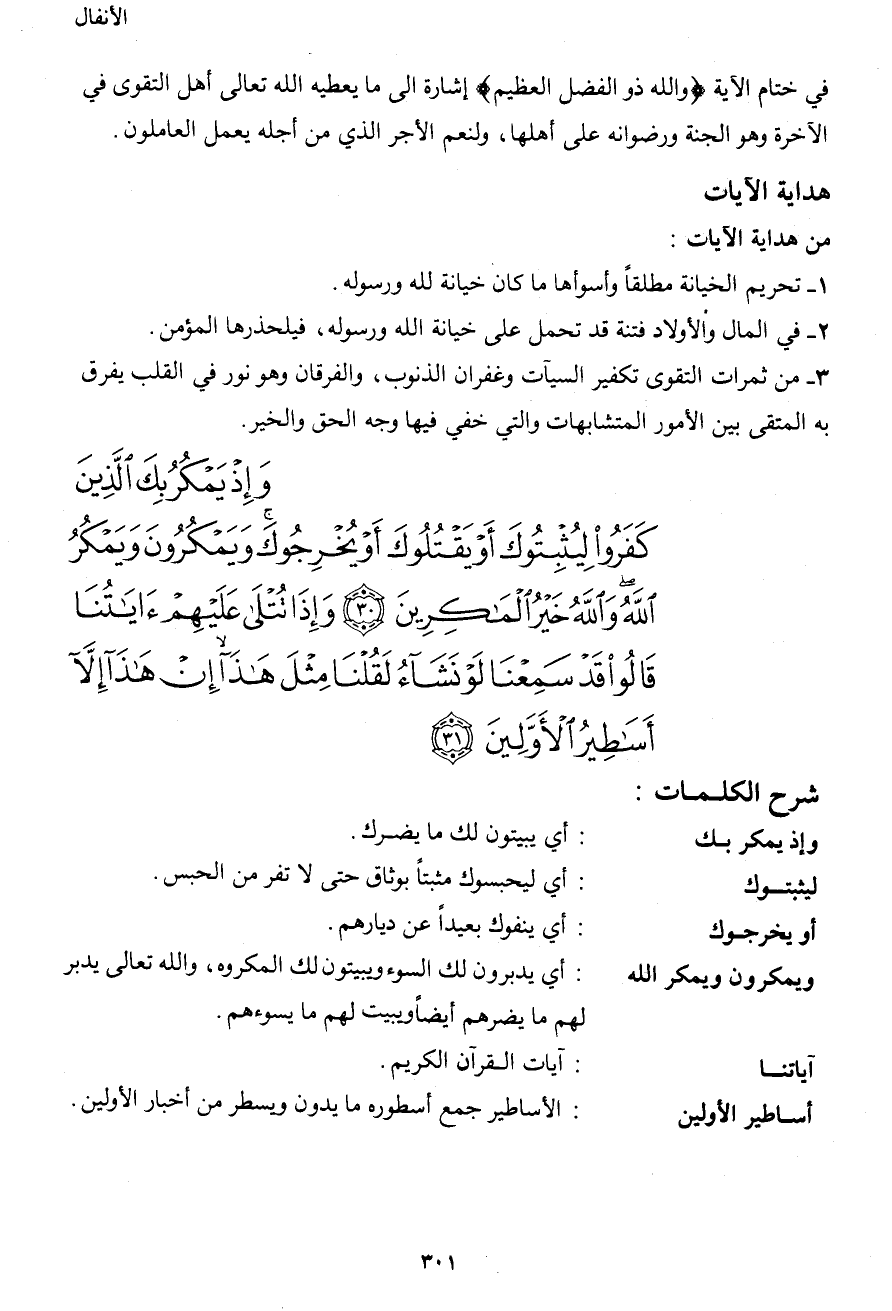 الأنفال
في ختام الآية ﴿والله ذو الفضل العظيم﴾ إشارة الى ما يعطيه الله تعالى أهل التقوى في
الآخرة وهو الجنة ورضوانه على أهلها، ولنعم الأجر الذي من أجله يعمل العاملون.
هداية الآيات
من هداية الآيات :
١ـ تحريم الخيانة مطلقاً وأسوأها ما كان خيانة لله ورسوله.
٢ـ في المال والأولاد فتنة قد تحمل على خيانة الله ورسوله، فيلحذرها المؤمن.
٣ـ من ثمرات التقوى تكفير السيآت وغفران الذنوب، والفرقان وهو نور في القلب يفرق
به المتقى بين الأمور المتشابهات والتي خفي فيها وجه الحق والخير.
وَإِذۡ يَمۡكُرُ بِكَ ٱلَّذِينَ
كَفَرُواْ لِيُثۡبِتُوكَ أَوۡ يَقۡتُلُوكَ أَوۡ يُخۡرِجُوكَۚ وَيَمۡكُرُونَ وَيَمۡكُرُ
ٱللَّهُۖ وَٱللَّهُ خَيۡرُ ٱلۡمَٰكِرِينَ ٣٠ وَإِذَا تُتۡلَىٰ عَلَيۡهِمۡ ءَايَٰتُنَا
قَالُواْ قَدۡ سَمِعۡنَا لَوۡ نَشَآءُ لَقُلۡنَا مِثۡلَ هَٰذَآۙ إِنۡ هَٰذَآ إِلَّآ
أَسَٰطِيرُ ٱلۡأَوَّلِينَ ٣١
شرح الكلـمـات :
وإذ يمكر بـك : أي يبيتون لك ما يضـرك.
ليثبتـوك : أي ليحبسوك مثبتاً بوثاق حتى لا تفر من الحبس.
أو يخرجـوك : أي ينفوك بعيداً عن ديارهم.
ويمكرون ويمكر الله : أي يدبرون لك السوء ويبيتون لك المكروه، والله تعالى يدبر
لهم ما يضرهم أيضاً ويبيت لهم ما يسوءهم.
آياتنـا : آيات القرآن الكريم.
أساطير الأولين : الأساطير جمع أسطوره ما يدون ويسطر من أخبار الأولين.
٣٠١